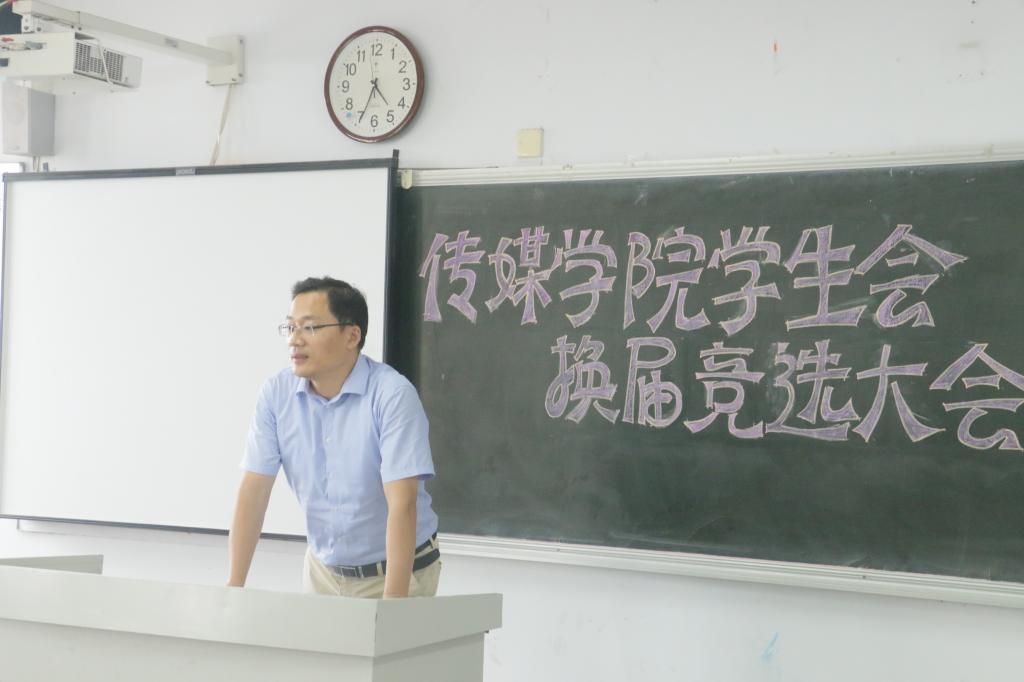 12
1
2
3
4
5
6
7
8
9
10
11
传媒学院学生会
换届竞选大会